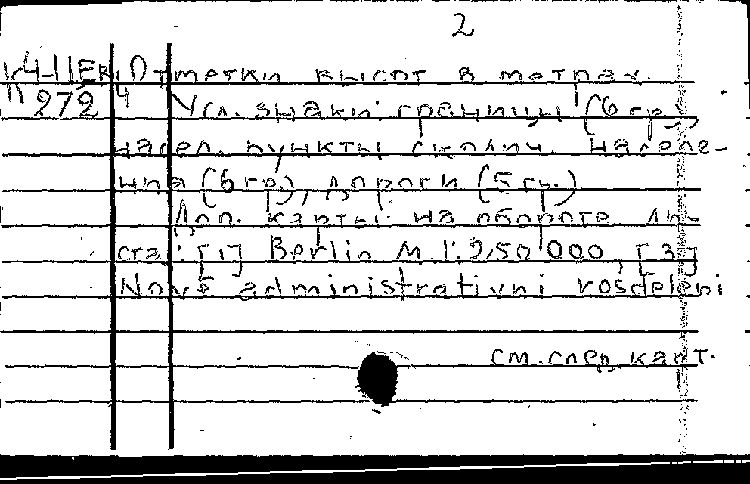 2
К4-ЦЕв. Отметки высот в метрах.
272 4 Усл. знаки: границы (6 гр.),
насел. пункты с колич. населе-
ния (6 гр.), дороги (5 гр.)
Доп. карты: на обороте ли-
ста: [1] Berlin M 1:250 000, [3]
Nové administrativni rosdeleni
см. след. карт.